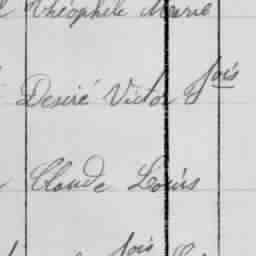 Théophile Marie
Desiré Victor fois
Claude Louis
fois